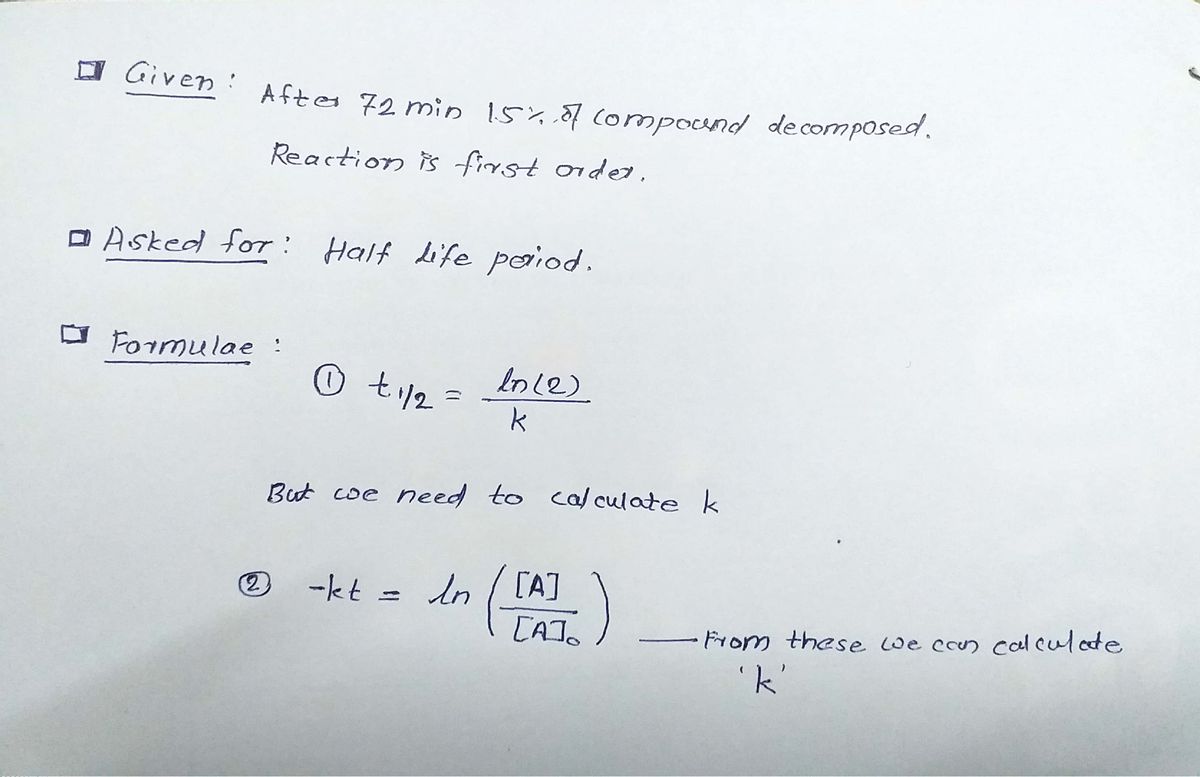 Given: After 72 min 15% of compound decomposed.
Reaction is first order.
Asked for: Half life period.
Formulae:
① t1/2 = ln(2)/k
But we need to calculate k
② -kt = ln([A]/[A]₀) — From these we can calculate
'k'